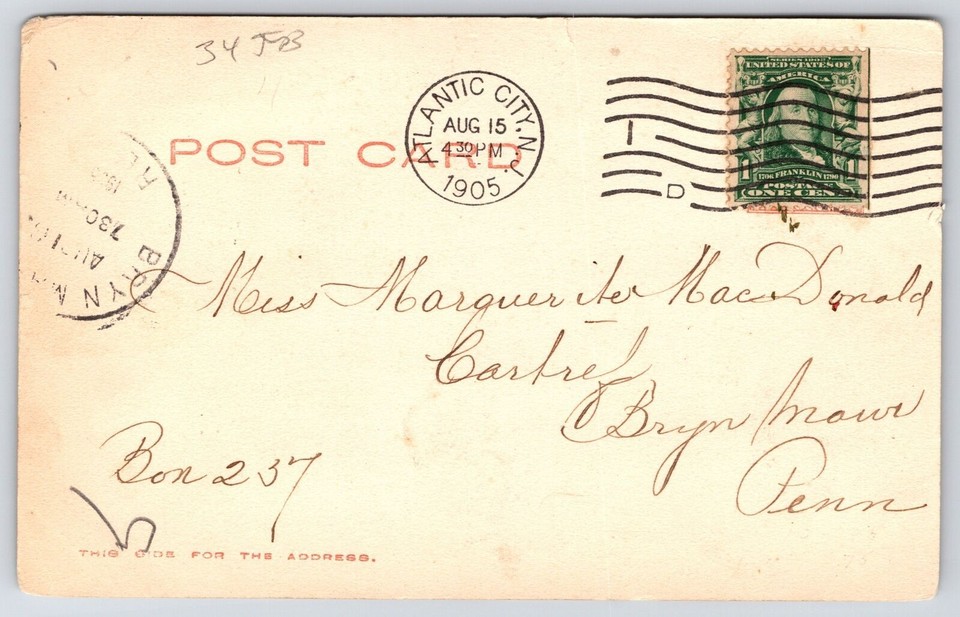 34
POST CARD
ATLANTIC CITY, N. J.
AUG 15
4 30 PM
1905
1
D
SERIES 1902
UNITED STATES OF
AMERICA
1 1
1706 FRANKLIN 1790
POSTAGE
ONE CENT
BRYN M
AUG 16
730 AM
Miss Marguerite MacDonald
Bryn Mawr
Penn
Box 237
THIS SIDE FOR THE ADDRESS.